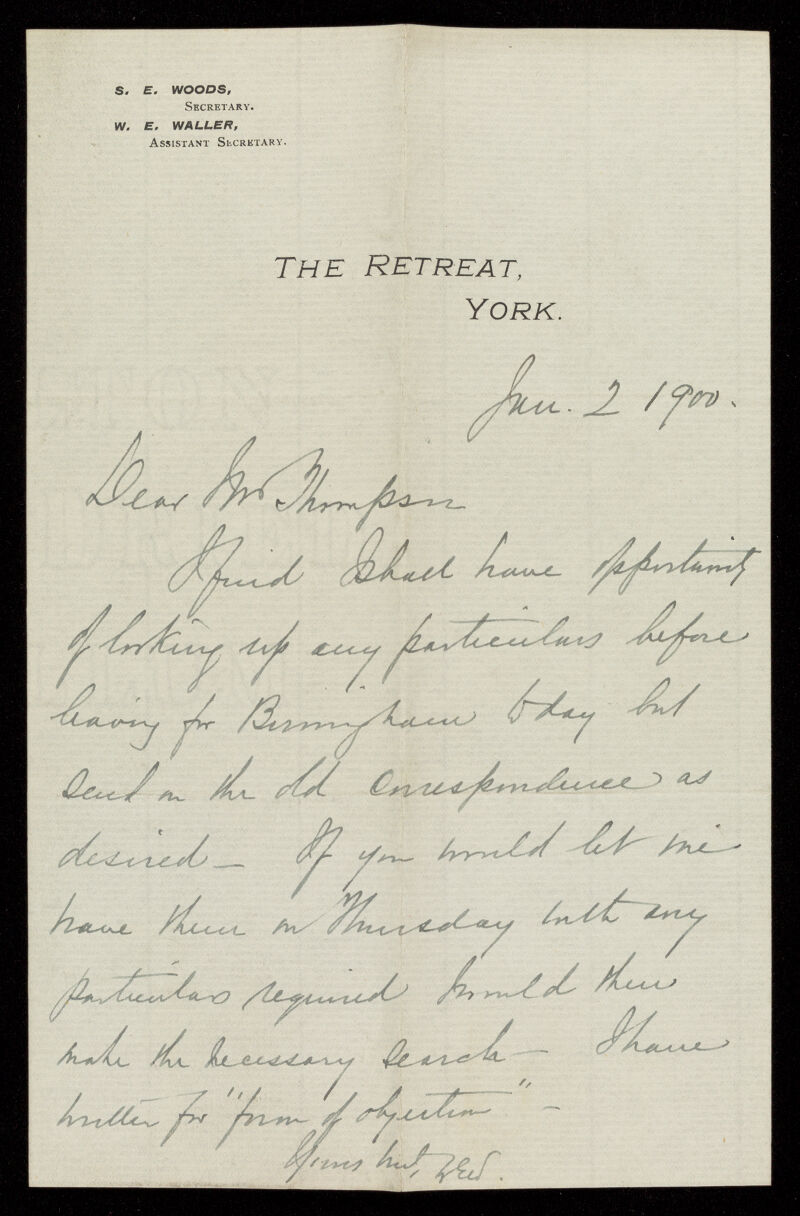 S. E. WOODS,
SECRETARY.
W. E. WALLER,
ASSISTANT SECRETARY.
THE RETREAT,
YORK.
Jan. 2 1900.
Dear Mr Thompson
I find I shall have opportunity
of looking up any particulars before
leaving for Birmingham today but
send on the old correspondence as
desired — If you would let me
have them on Thursday with any
particulars required I would then
make the necessary search — I have
written for "form of objection" —
Yours